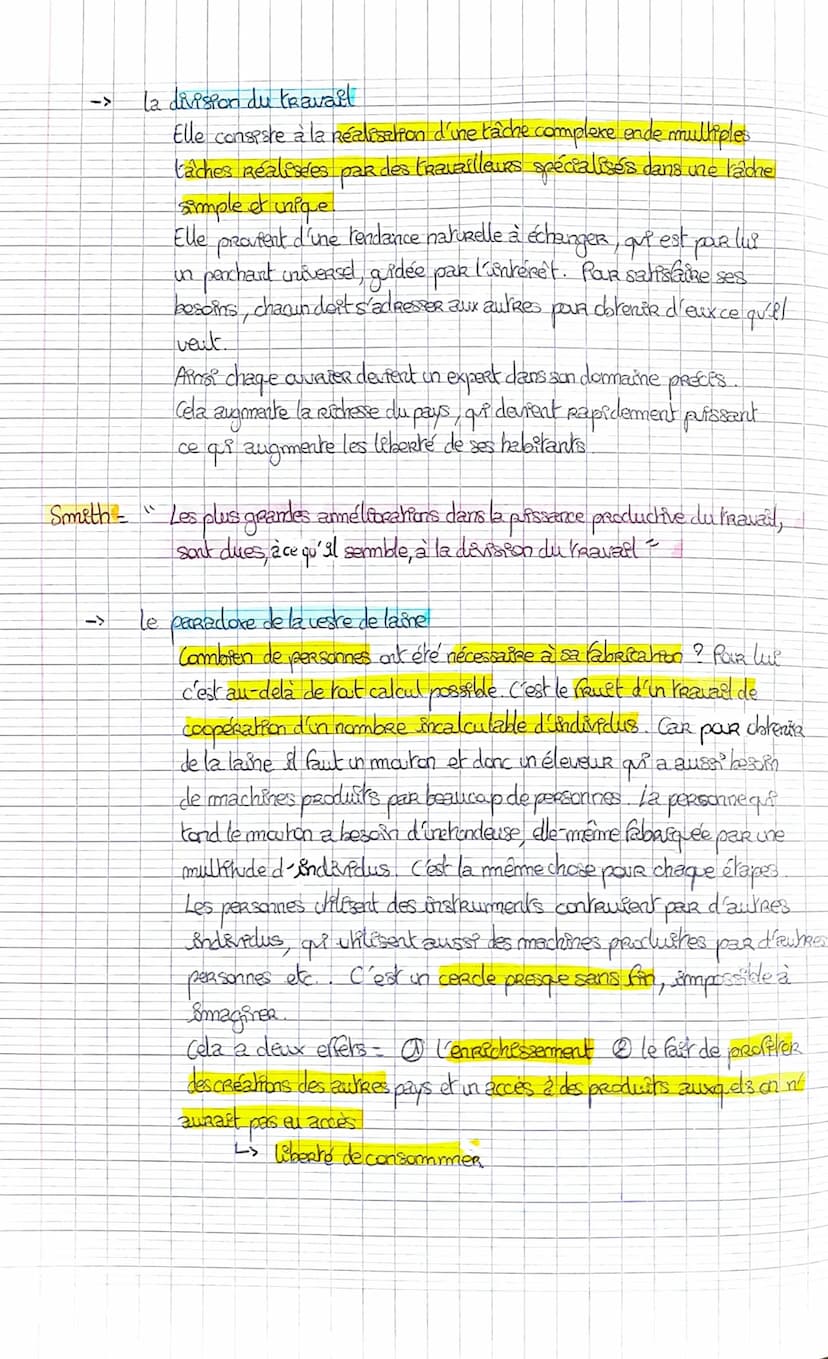 -> la division du travail
Elle consiste à la réalisation d'une tâche complexe en de multiples
tâches réalisées par des travailleurs spécialisés dans une tâche
simple et unique.
Elle provient d'une tendance naturelle à échanger, qui est pour lui
un penchant universel, guidée par l'intérêt. Pour satisfaire ses
besoins, chacun doit s'adresser aux autres pour obtenir d'eux ce qu'il
veut.
Ainsi chaque ouvrier devient un expert dans son dommaine précis.
Cela augmente la richesse du pays, qui devient rapidement puissant
ce qui augmente les liberté de ses habitants.
Smith = " Les plus grandes amméliorations dans la puissance productive du travail,
sont dues, à ce qu'il semmble, à la division du travail "
-> le paradoxe de la veste de laine
Combien de personnes ont été nécessaire à sa fabrication ? Pour lui
c'est au-delà de tout calcul possible. C'est le fruit d'un travail de
coopération d'un nombre incalculable d'individus. Car pour obtenir
de la laine il faut un mouton et donc un éleveur qui a aussi besoin
de machines produits par beaucoup de personnes. La personne qui
tond le mouton a besoin d'une tondeuse, elle-même fabriquée par une
multitude d'individus. C'est la même chose pour chaque étapes.
Les personnes utilisent des instruments contruisent par d'autres
individus, qui utilisent aussi des machines produites par d'autres
personnes etc.. C'est un cercle presque sans fin, impossible à
imaginer.
Cela a deux effets = ① l'enrichissement ② le fait de profiter
des créations des autres pays et un accès à des produits auxquels on n'
aurait pas eu accès
↳ liberté de consommmer